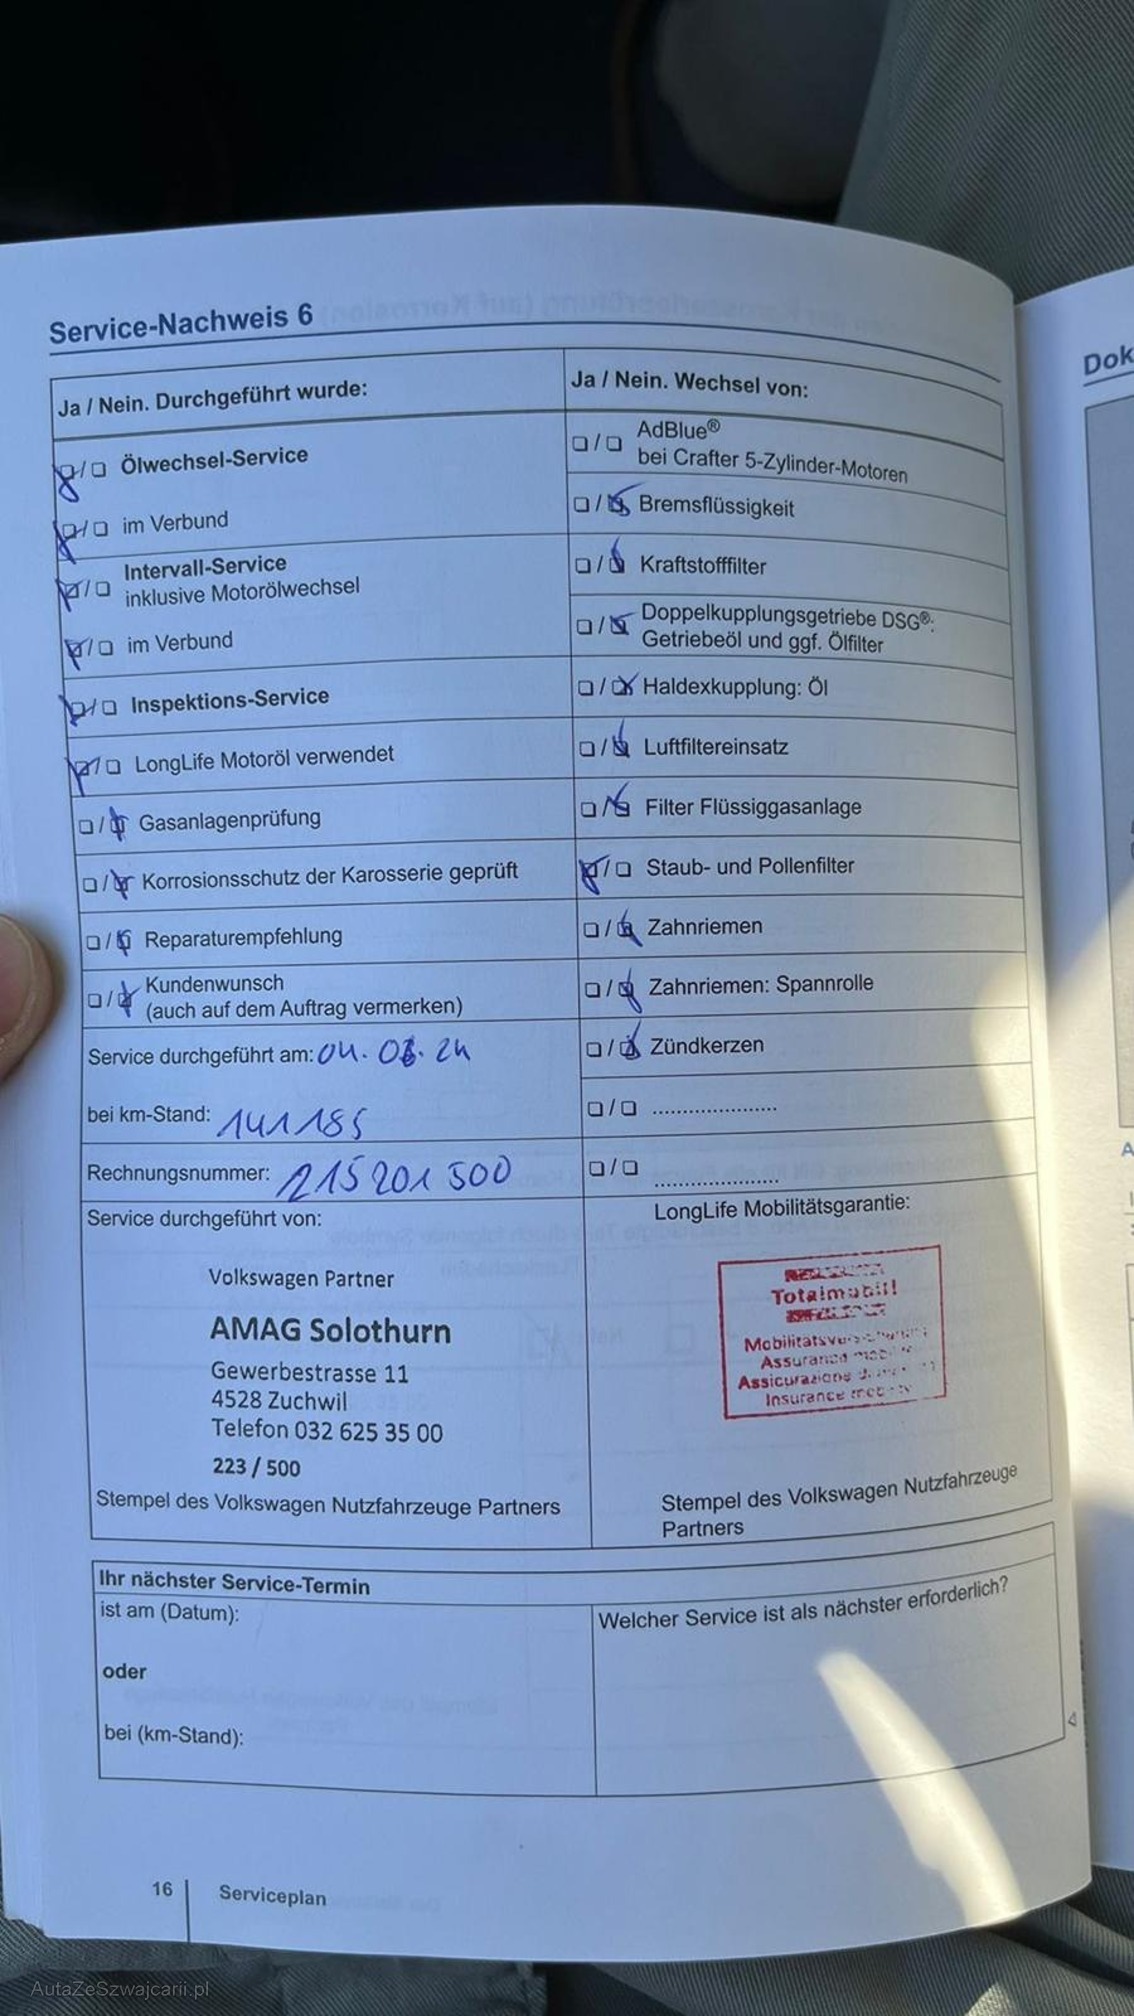 Service-Nachweis 6
Dok
Ja / Nein. Durchgeführt wurde:
Ölwechsel-Service
im Verbund
Intervall-Service
inklusive Motorölwechsel
im Verbund
Inspektions-Service
LongLife Motoröl verwendet
Gasanlagenprüfung
Korrosionsschutz der Karosserie geprüft
Reparaturempfehlung
Kundenwunsch
(auch auf dem Auftrag vermerken)
Service durchgeführt am: 04. 03. 24
bei km-Stand: 141185
Rechnungsnummer: 215201500
Service durchgeführt von:
Volkswagen Partner
AMAG Solothurn
Gewerbestrasse 11
4528 Zuchwil
Telefon 032 625 35 00
223 / 500
Stempel des Volkswagen Nutzfahrzeuge Partners
Ja / Nein. Wechsel von:
AdBlue®
bei Crafter 5-Zylinder-Motoren
Bremsflüssigkeit
Kraftstofffilter
Doppelkupplungsgetriebe DSG®:
Getriebeöl und ggf. Ölfilter
Haldexkupplung: Öl
Luftfiltereinsatz
Filter Flüssiggasanlage
Staub- und Pollenfilter
Zahnriemen
Zahnriemen: Spannrolle
Zündkerzen
LongLife Mobilitätsgarantie:
Totalmobil!
Assurance
Assicurazione
Insurance
Stempel des Volkswagen Nutzfahrzeuge
Partners
Ihr nächster Service-Termin
ist am (Datum):
oder
bei (km-Stand):
Welcher Service ist als nächster erforderlich?
16 Serviceplan
AutaZeSzwajcarii.pl